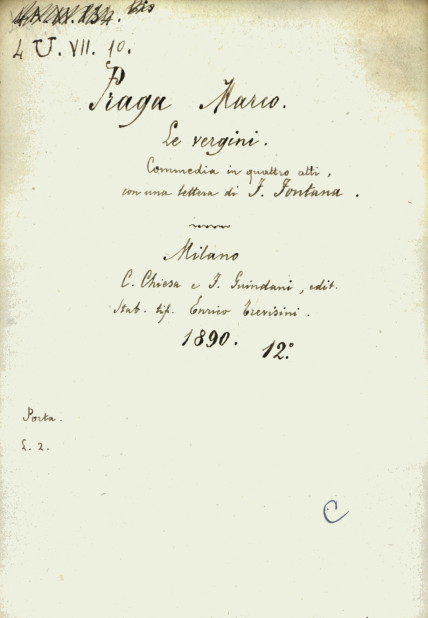 bis
4 U. VII. 10.
Praga Marco.
Le vergini.
Commedia in quattro atti,
con una lettera di F. Fontana.
Milano
C. Chiesa e F. Guindani, edit.
Stab. tip. Enrico Trevisini.
1890. 12°
Porta.
L. 2.
C